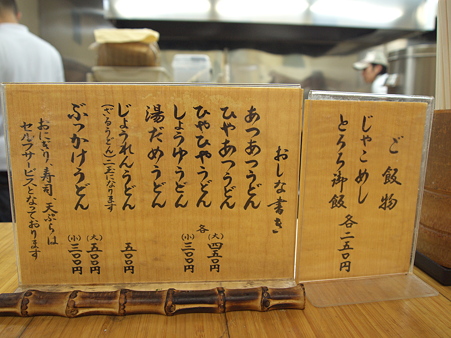 おしな書き
あつあつうどん
ひやあつうどん
ひやひやうどん
しょうゆうどん
湯だめうどん
各
(大) 四五〇円
(小) 三〇〇円
じょうれんうどん 五〇〇円
(ざるうどん)二玉になります
ぶっかけうどん
(大) 五〇〇円
(小) 三〇〇円
おにぎり、寿司、天ぷらは
セルフサービスとなっております
ご飯物
じゃこめし
とろろ御飯
各二五〇円